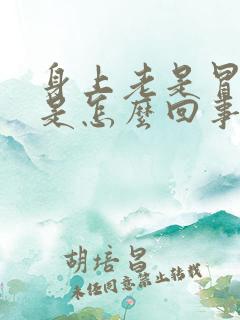 身上老是冒
是怎麼回事
胡培昌
未经同意禁止转载